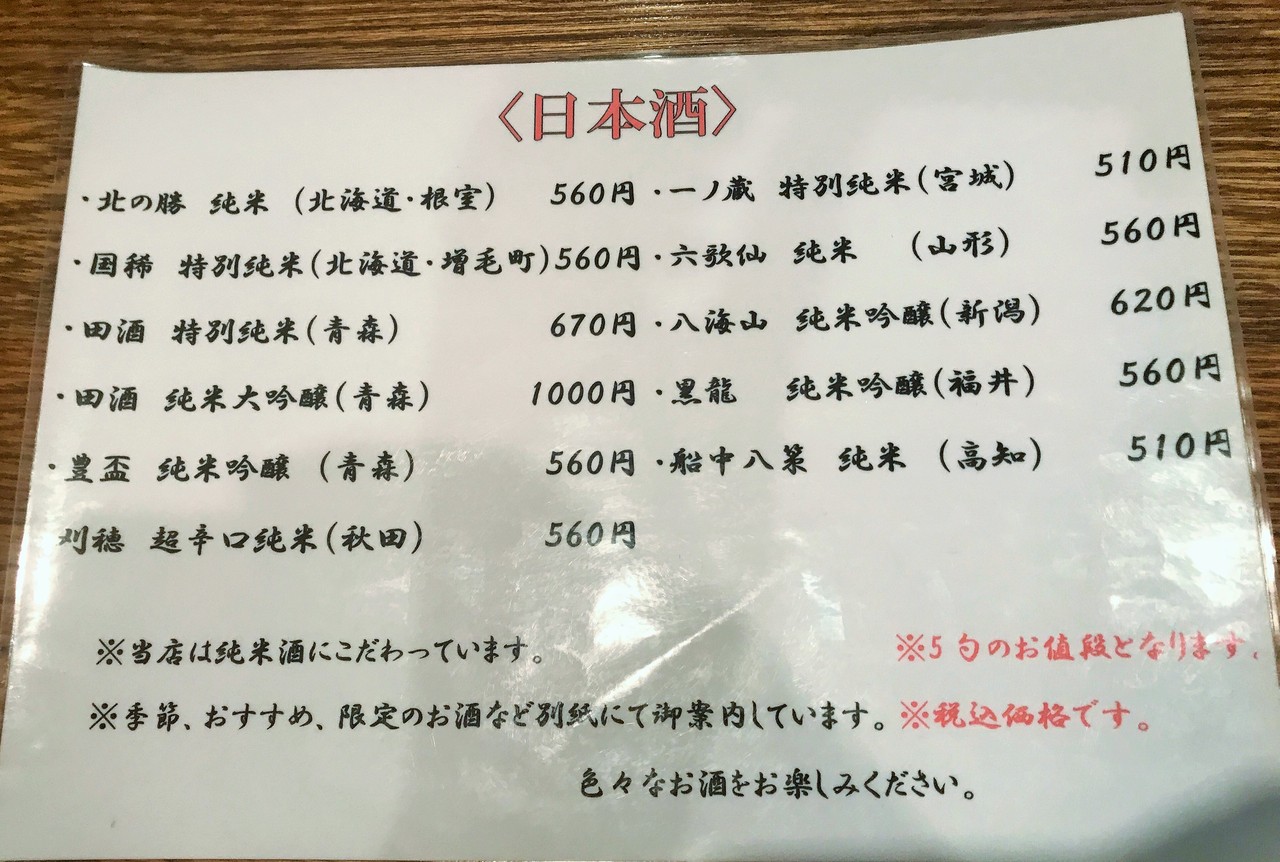 〈日本酒〉
・北の勝 純米 (北海道・根室) 560円
・国稀 特別純米(北海道・増毛町)560円
・田酒 特別純米(青森) 670円
・田酒 純米大吟醸(青森) 1000円
・豊盃 純米吟醸 (青森) 560円
刈穂 超辛口純米(秋田) 560円
・一ノ蔵 特別純米(宮城) 510円
・六歌仙 純米 (山形) 560円
・八海山 純米吟醸(新潟) 620円
・黒龍 純米吟醸(福井) 560円
・船中八策 純米 (高知) 510円
※当店は純米酒にこだわっています。
※5勺のお値段となります.
※季節、おすすめ、限定のお酒など別紙にて御案内しています。
※税込価格です。
色々なお酒をお楽しみください。